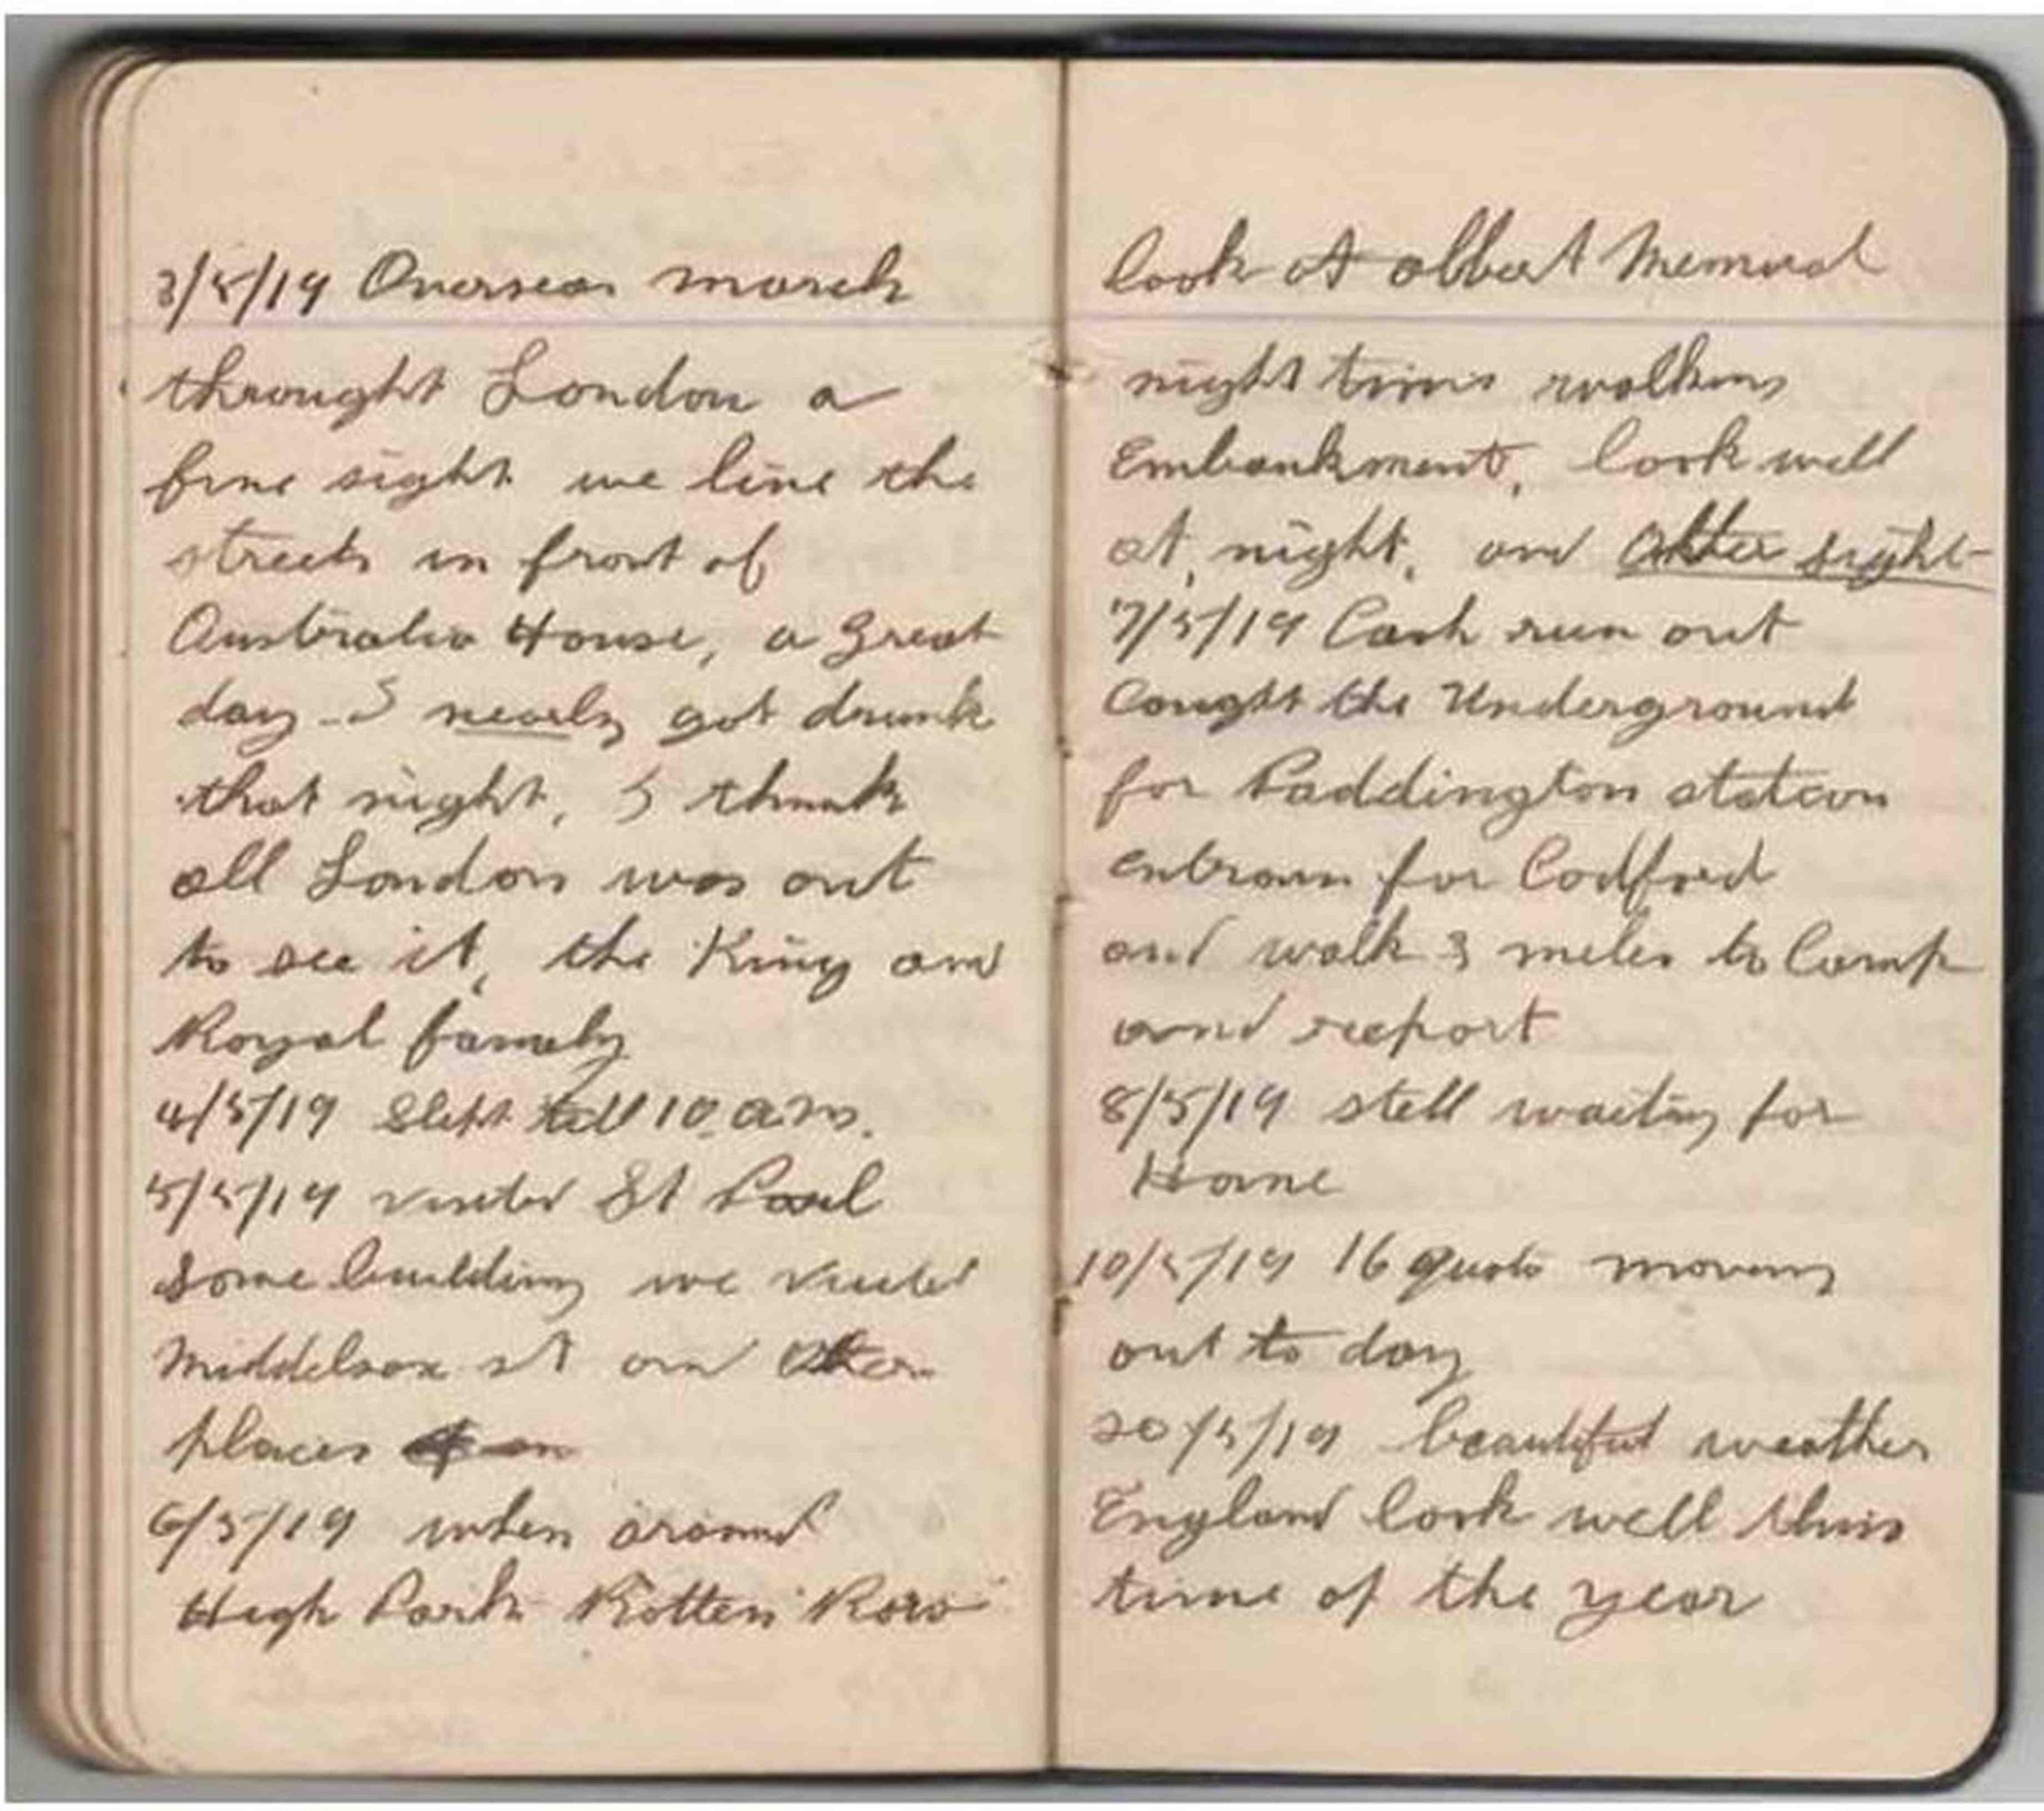 3/5/19 Overseas march
throught London a
fine sight we line the
streets in front of
Australia House, a great
day - I nearly got drunk
that night, I think
all London was out
to see it, the King and
Royal family
4/5/19 Slept till 10 a.m.
5/5/19 visited St Paul
some building we visited
Middelsex st and other
places
6/5/19 when around
High Park Rotten Row
look at albert Memorial
night time walking
Embankment, look well
at, night, and other sight
7/5/19 Cash run out
Cought the Underground
for Paddington station
entrain for Codford
and walk 3 miles to Camp
and report
8/5/19 still waiting for
Home
10/5/19 16 quota moving
out to day
20/5/19 beautiful weather
England look well this
time of the year